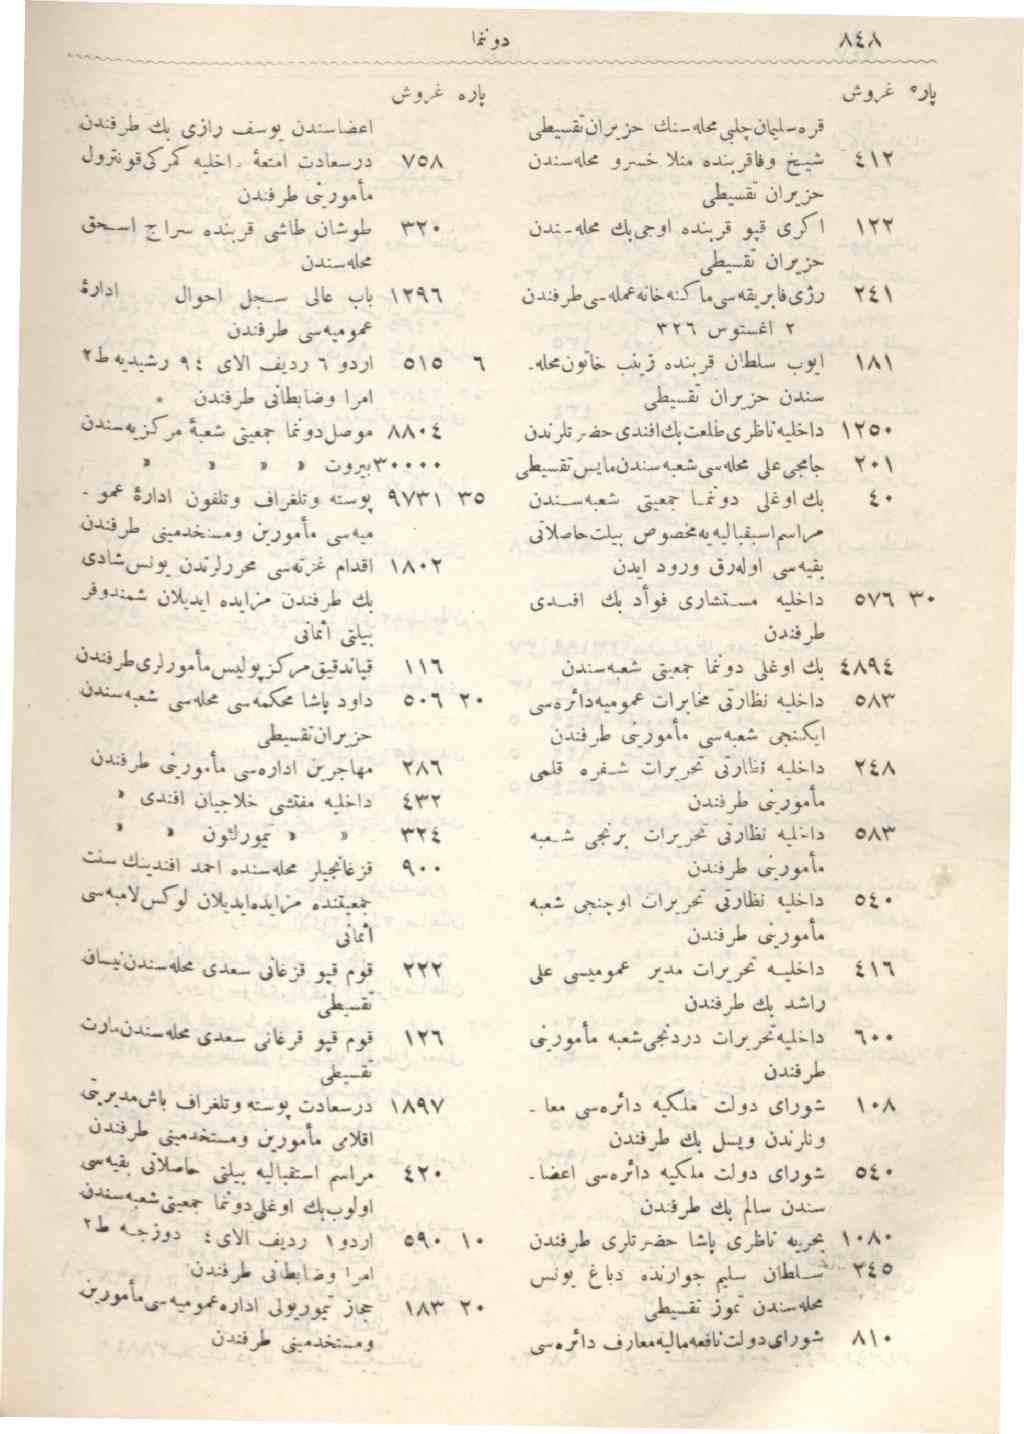 ٨٤٨
دونما
پاره غروش
قره‌سلیمان‌چلبی محله‌سنك حزیران‌تقسیطی
٤١٢ شیخ وفاقربنده منلا خسرو محله‌سندن
حزیران تقسیطی
١٢٢ اكری قپو قربنده اوجی‌بك محله‌سندن
حزیران تقسیطی
٢٤١ رژی‌فابریقه‌سی‌ماكنه‌خانه‌عمله‌سی‌طرفندن
٢ اغستوس ٣٢٦
١٨١ ایوب سلطان قربنده زینب خاتون‌محله‌-
سندن حزیران تقسیطی
١٢٥٠ داخلیه‌ناظری‌طلعت‌بك‌افندی‌حضرتلرندن
٢٠١ جامجی‌علی محله‌سی‌شعبه‌سندن‌مایس‌تقسیطی
٤٠ بك اوغلی دونمـا جمعیتی شعبه‌ســندن
مراسم‌استقبالیه‌یه‌مخصوص بیلت‌حاصلاتی
بقیه‌سی اوله‌رق ورود ایدن
٣٠ ٥٧٦ داخلیه مستشاری فوأد بك افنــدی
طرفندن
٤٨٩٤ بك اوغلی دونما جمعیتی شعبه‌سندن
٥٨٣ داخلیه نظارتی مخابرات عمومیه‌دائره‌سی
ایكنجی شعبه‌سی مأمورینی طرفندن
٢٤٨ داخلیه نظارتی تحریرات شـفره قلمی
مأمورینی طرفندن
٥٨٣ داخلیه نظارتی تحریرات برنجی شـعبه
مأمورینی طرفندن
٥٤٠ داخلیه نظارتی تحریرات اوچنجی شعبه
مأمورینی طرفندن
٤١٦ داخلیـه تحریرات مدیر عمومیسی علی
راشد بك طرفندن
٦٠٠ داخلیه‌تحریرات دردنجی‌شعبه مأمورینی
طرفندن
١٠٨ شورای دولت ملكیه دائره‌سی معا -
ونلرندن ویسل بك طرفندن
٥٤٠ شورای دولت ملكیه دائره‌سی اعضا-
سندن سالم بك طرفندن
١٠٨٠ بحریه ناظری پاشا حضرتلری طرفندن
٣٤٥ سـلطان سلیم جوارنده دباغ یونس
محله‌سندن تموز تقسیطی
٨١٠ شورای‌دولت‌نافعه‌مالیه‌معارف دائره‌سی
پاره غروش
اعضاسندن یوسف رازی بك طرفندن
٧٥٨ درسعادت امتعهٔ داخلیه كمركی‌قونترول
مأمورینی طرفندن
٣٢٠ طوشان طاشی قربنده سراج اسـحق
محله‌سندن
١٢٩٦ باب عالی سـجل احوال ادارهٔ
عمومیه‌سی طرفندن
٦ ٥١٥ اردو ٦ ردیف الای ٩٤ رشیدیه ط٢
امرا وضابطانی طرفندن
٨٨٠٤ موصل‌دونما جمعیتی شعبهٔ مركزیه‌سندن
٣٠٠٠٠ بیروت » » » »
٣٥ ٩٧٣١ پوسته وتلغراف وتلفون ادارهٔ عمو -
میه‌سی مأمورین ومستخدمینی طرفندن
١٨٠٢ اقدام غزته‌سی محررلرندن یونس‌شادی
بك طرفندن مزایده ایدیلان شمندوفر
بیلتی اثمانی
١١٦ قپاندقیق‌مركزپولیس‌مأمورلری‌طرفندن
٢٠ ٥٠٦ داود پاشا محكمه‌سی محله‌سی شعبه‌سندن
حزیران‌تقسیطی
٢٨٦ مهاجرین اداره‌سی مأمورینی طرفندن
٤٣٢ داخلیه مفتشی خلاجیان افندی »
٣٢٤ » » تیمورلئون » »
٩٠٠ قزغانجیلر محله‌سنده احمد افندینك سنت
جمعیتنده مزایده‌ایدیلان لوكس‌لامبه‌سی
اثمانی
٢٢٢ قوم قپو قزغانی سعدی محله‌سندن‌نیسان
تقسیطی
١٢٦ قوم قپو قزغانی سعدی محله‌سندن‌مارت
تقسیطی
١٨٩٧ درسعادت پوسته وتلغراف باش‌مدیریتی
اقلامی مأمورین ومستخدمینی طرفندن
٤٢٠ مراسم استقبالیه بیلتی حاصلاتی بقیه‌سی
اولوب‌بك اوغلی‌دونما جمعیتی‌شعبه‌سندن
١٠ ٥٩٠ اردو١ ردیف الای٤ دوزجـه ط٢
امرا وضابطانی طرفندن
٢٠ ١٨٣ حجاز تیموریولی اداره‌عمومیه‌سی‌مأمورین
ومستخدمینی طرفندن